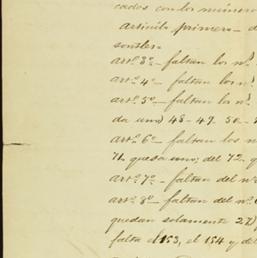 cados con los número
artículo primero - d
art.º 3º - faltan los nº
art.º 4º - faltan los nº
art.º 5º - faltan los nº
da uno) 48 - 49. 50 -
art.º 6º - faltan los n
71, quesa uno; del 72. q
art.º 7º - faltan del nº
art.º 8º - faltan del nº
quedan solamente 27)
falta el 153, el 154 y de